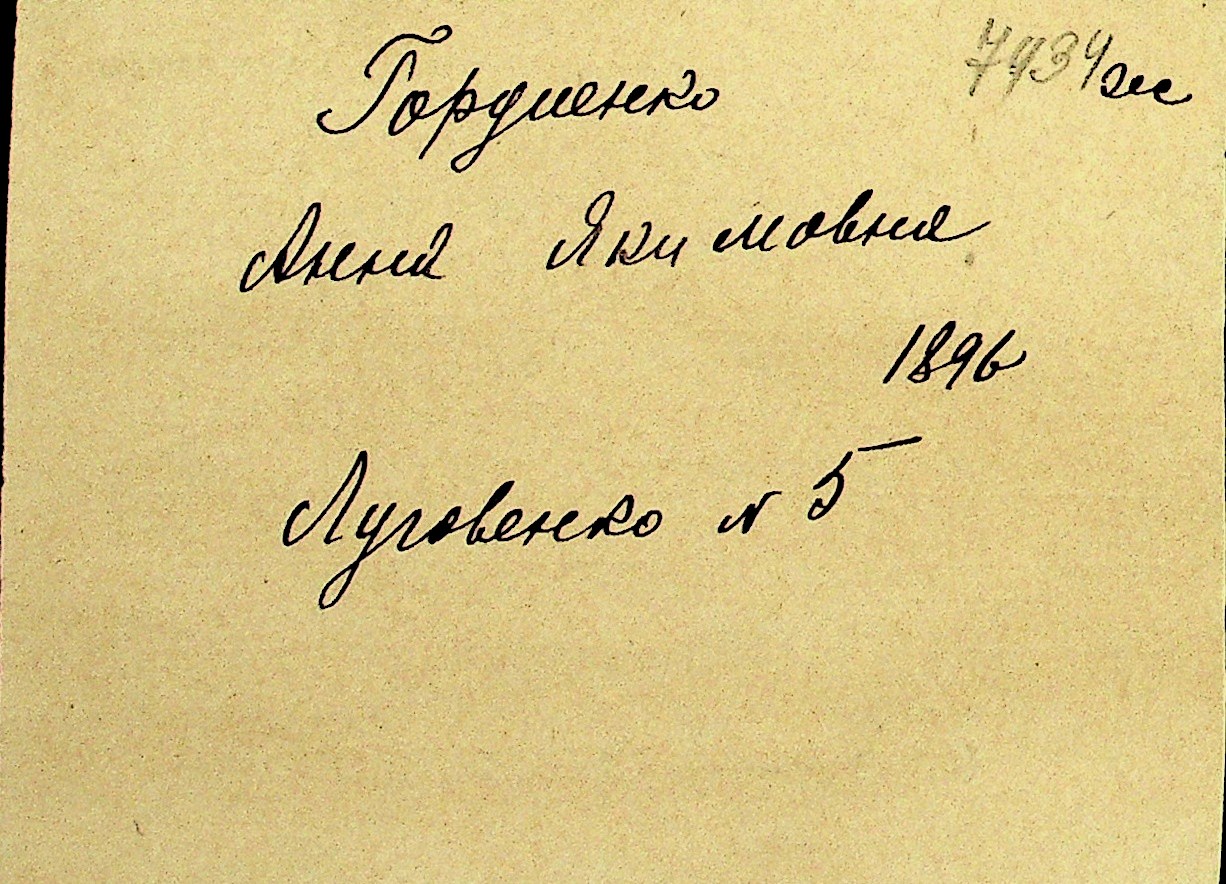 7934 ж
Гордиенко
Анна Якимовна
1896
Луговенко N 5